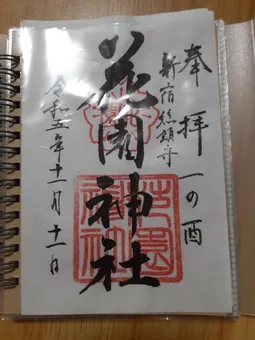 奉拝 一の酉
新宿総鎮守
花園神社
令和五年十一月十一日